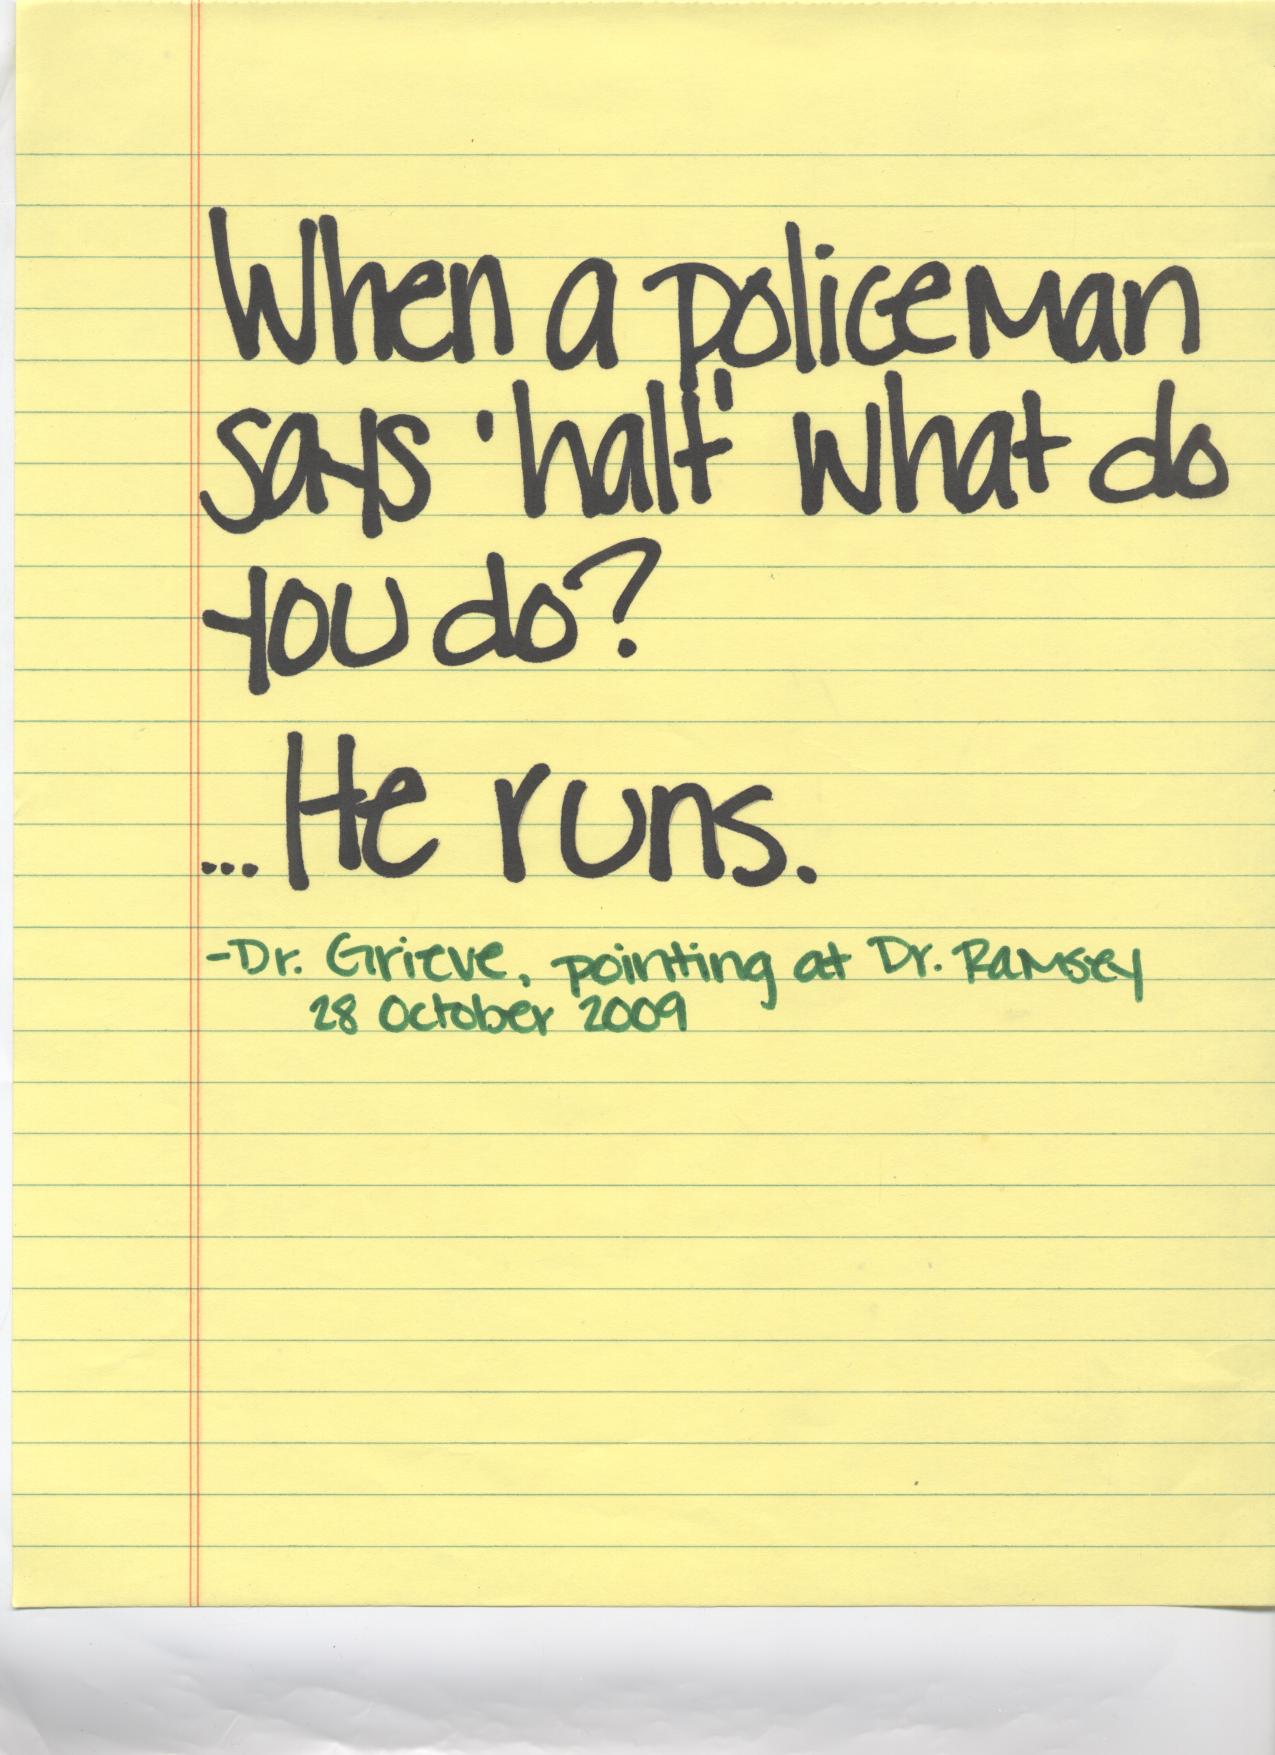 When a policeman
says 'halt' what do
you do?
...He runs.
-Dr. Grieve, pointing at Dr. Ramsey
28 October 2009